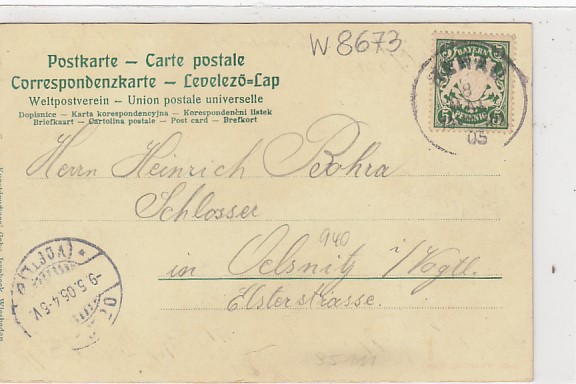 W 8673
Postkarte – Carte postale
Correspondenzkarte – Levelezö-Lap
Weltpostverein – Union postale universelle
Dopisnice – Karta korespondencyjna – Korespondenční listek
Briefkaart – Cartolina postale – Post card – Brefkort
BAYERN
5 5
PFENNIG
05
Herrn Heinrich Bohra
Schlosser
940
in Oelsnitz i/Vogtl.
Elsterstrasse.
-9.5.05.4-5V.